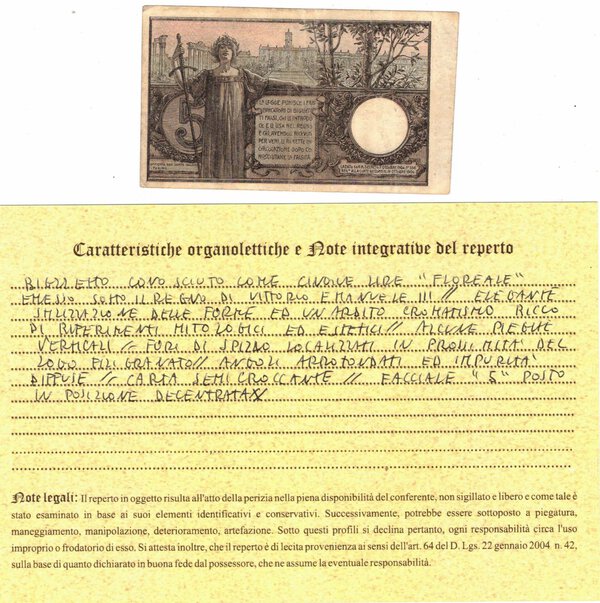 LA LEGGE PUNISCE I FAB
BRICATORI DI BIGLIET
TI FALSI, CHI LI INTRODU
CE E LI USA NEL REGNO
E CHI, AVENDOLI RICEVUTI
PER VERI, LI RIMETTE IN
CIRCOLAZIONE DOPO CO
NOSCIUTANE LA FALSITÀ
Caratteristiche organolettiche e Note integrative del reperto
BIGLIETTO CONOSCIUTO COME CINQUE LIRE "FLOREALE"
EMESSO SOTTO IL REGNO DI VITTORIO EMANUELE III // ELEGANTE
STILIZZAZIONE DELLE FORME ED UN ARDITO CROMATISMO RICCO
DI RIFERIMENTI MITOLOGICI ED ESTETICI // ALCUNE PIEGHE
VERTICALI // FORI DI SPILLO LOCALIZZATI IN PROSSIMITA' DEL
LOGO FILIGRANATO // ANGOLI ARROTONDATI ED IMPURITA'
DIFFUSE // CARTA SEMICROCCANTE // FACCIALE "5" POSTO
IN POSIZIONE DECENTRATA //
Note legali: Il reperto in oggetto risulta all'atto della perizia nella piena disponibilità del conferente, non sigillato e libero e come tale è
stato esaminato in base ai suoi elementi identificativi e conservativi. Successivamente, potrebbe essere sottoposto a piegatura,
maneggiamento, manipolazione, deterioramento, artefazione. Sotto questi profili si declina pertanto, ogni responsabilità circa l'uso
improprio o frodatorio di esso. Si attesta inoltre, che il reperto è di lecita provenienza ai sensi dell'art. 64 del D. Lgs. 22 gennaio 2004 n. 42,
sulla base di quanto dichiarato in buona fede dal possessore, che ne assume la eventuale responsabilità.